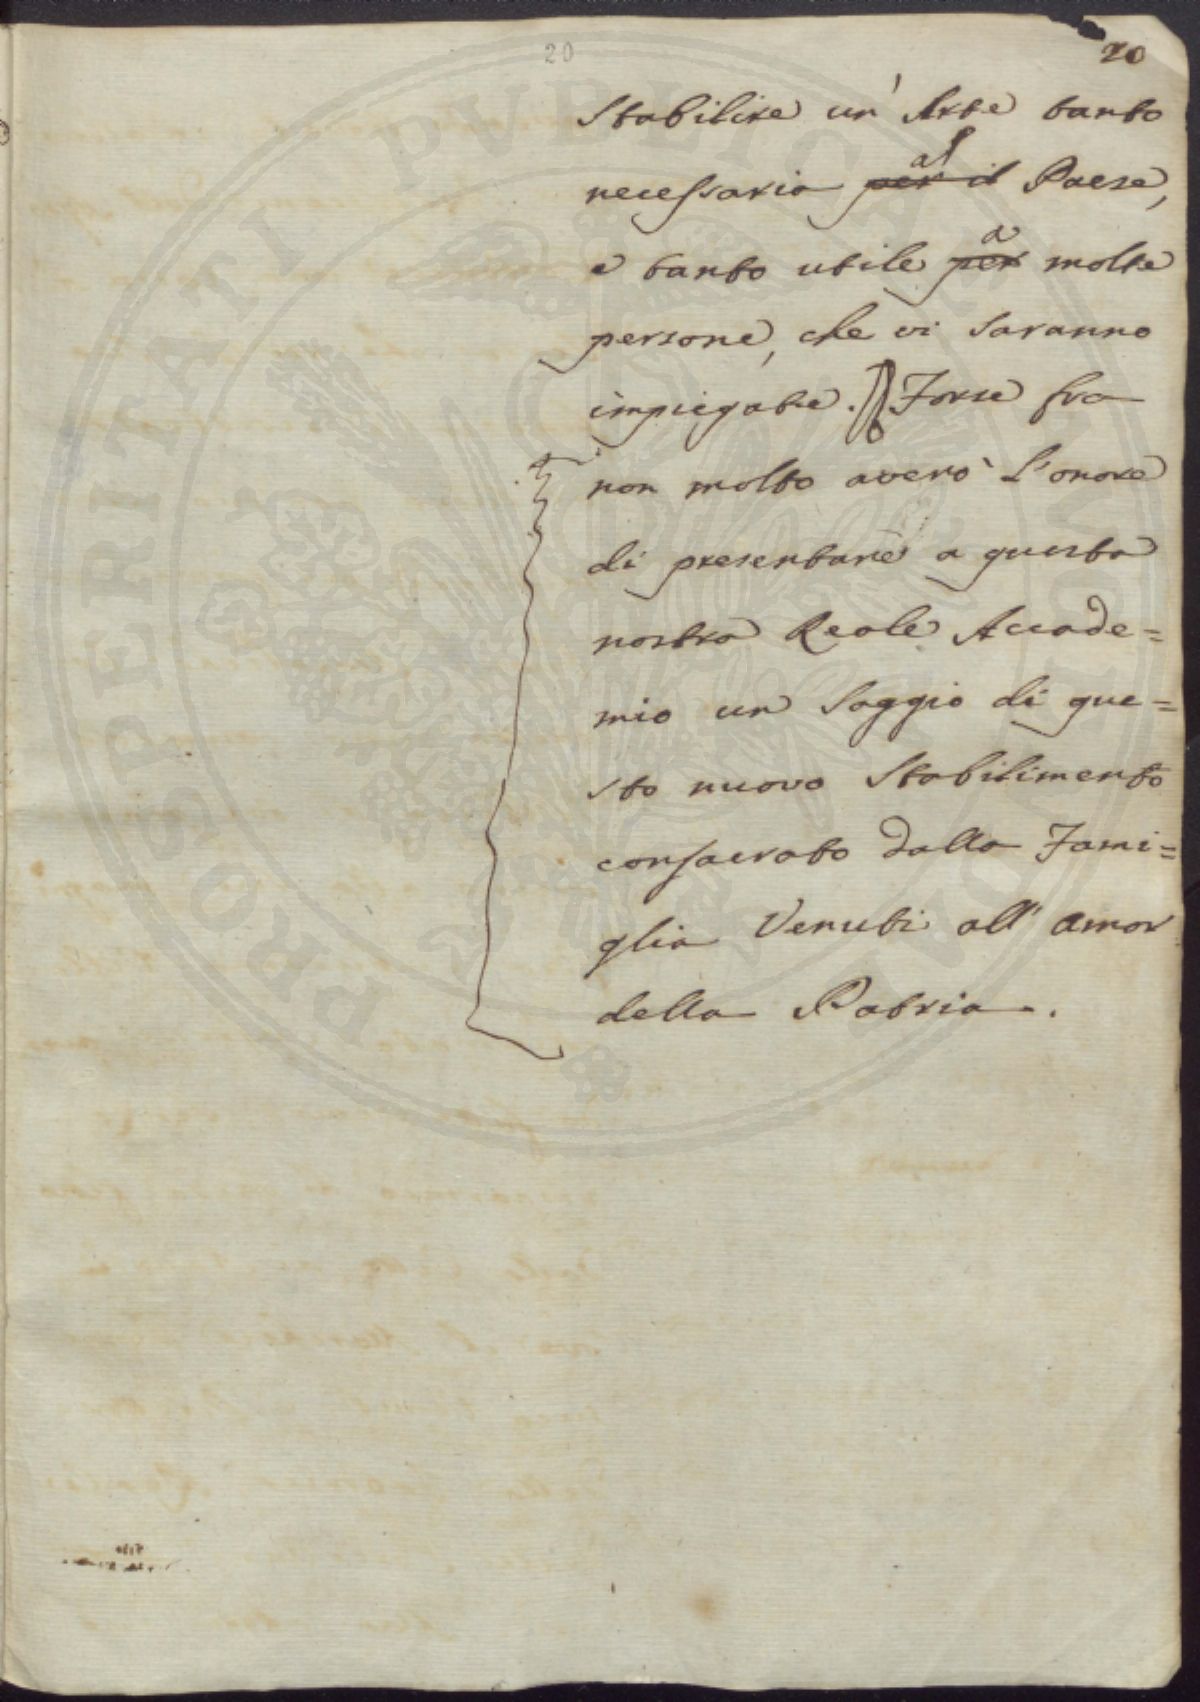 20
20
stabilire un' Arte tanto
necessaria per il al Paese,
e tanto utile per a molte
persone, che vi saranno
impiegate. Forse fra
non molto averò l'onore
di presentare a questa
nostra Reale Accade=
mia un saggio di que=
sto nuovo Stabilimento
consacrato dalla Fami=
glia Venuti all' amor
della Patria.
PROSPERITATI PUBLICAE AUGENDAE